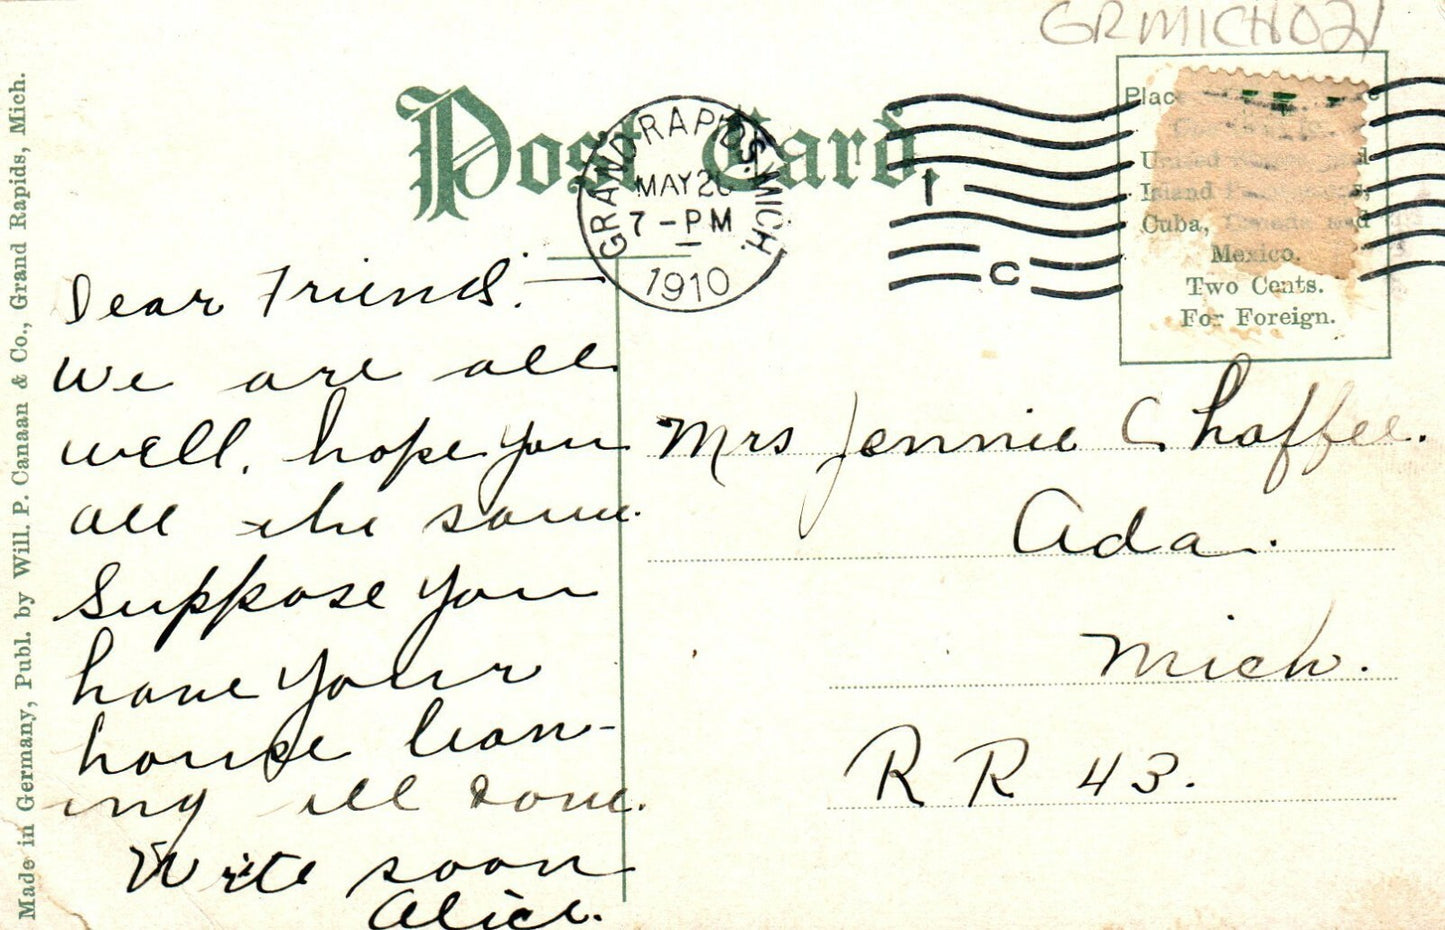 GRMICH021
Post Card.
GRAND RAPIDS, MICH.
MAY 26
7-PM
1910
1
C
Place
United
Island
Cuba, and
Mexico.
Two Cents.
For Foreign.
Made in Germany, Publ. by Will. P. Canaan & Co., Grand Rapids, Mich.
Dear Friend. —
We are all
well. hope you
all the same.
Suppose you
have your
house clean-
ing all done.
Write soon
Alice.
Mrs Jennie Chaffee.
Ada.
Mich.
R R 43.